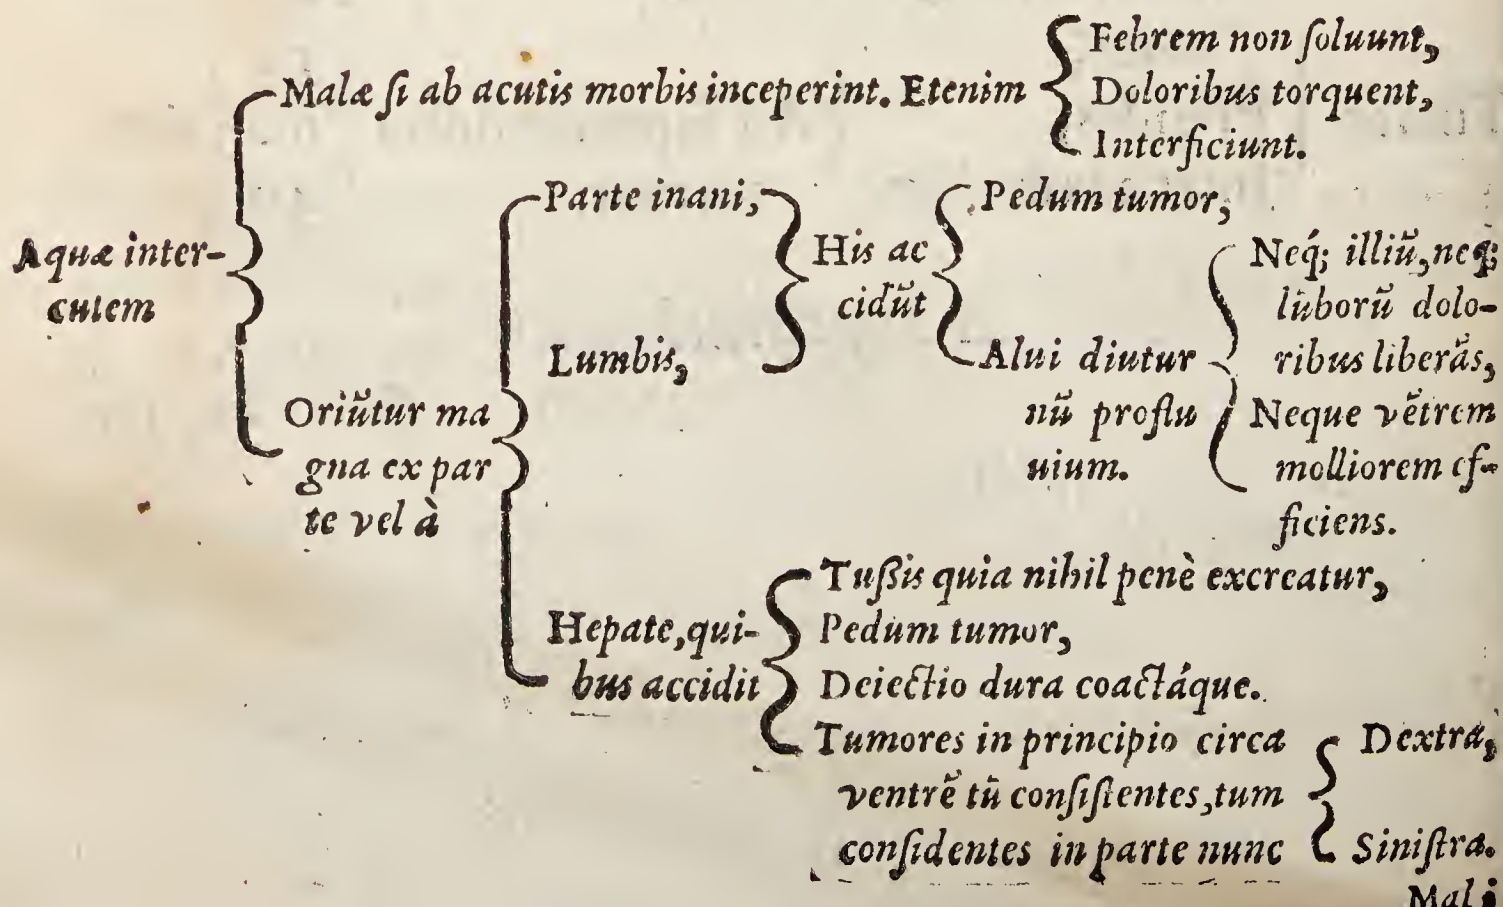 Aquæ inter-
cutem
Malæ ſi ab acutis morbis inceperint. Etenim
Febrem non ſoluunt,
Doloribus torquent,
Interficiunt.
Oriũtur ma
gna ex par
te vel à
Parte inani,
Lumbis,
His ac
cidũt
Pedum tumor,
Alui diutur
nũ proflu
uium.
Neq́; illiũ, neq́;
lũborũ dolo-
ribus liberãs,
Neque vẽtrem
molliorem ef-
ficiens.
Hepate, qui-
bus accidit
Tuſsis quia nihil penè excreatur,
Pedum tumor,
Deiectio dura coactáque.
Tumores in principio circa
ventrẽ tũ conſiſtentes, tum
conſidentes in parte nunc
Dextra,
Siniſtra.
Mali